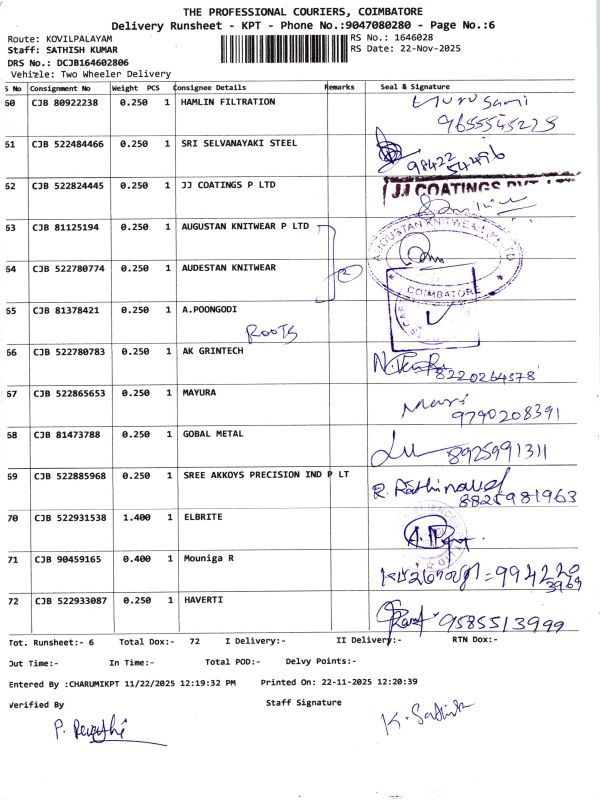 THE PROFESSIONAL COURIERS, COIMBATORE
Delivery Runsheet - KPT - Phone No.:9047080280 - Page No.:6
Route: KOVILPALAYAM
RS No.: 1646028
Staff: SATHISH KUMAR
RS Date: 22-Nov-2025
DRS No.: DCJB164602806
Vehicle: Two Wheeler Delivery
S No Consignment No Weight PCS Consignee Details Remarks Seal & Signature
60 CJB 80922238 0.250 1 HAMLIN FILTRATION
9655545275
61 CJB 522484466 0.250 1 SRI SELVANAYAKI STEEL
98422
54496
62 CJB 522824445 0.250 1 JJ COATINGS P LTD JJ COATINGS PVT
63 CJB 81125194 0.250 1 AUGUSTAN KNITWEAR P LTD
AUGUSTAN KNITWEAR
64 CJB 522780774 0.250 1 AUDESTAN KNITWEAR 2
COIMBATORE
65 CJB 81378421 0.250 1 A.POONGODI
ROOTS
66 CJB 522780783 0.250 1 AK GRINTECH
8220264378
67 CJB 522865653 0.250 1 MAYURA
Mari
9790208391
68 CJB 81473788 0.250 1 GOBAL METAL 8925991311
69 CJB 522885968 0.250 1 SREE AKKOYS PRECISION IND P LT R. Rathinavel
8825981963
70 CJB 522931538 1.400 1 ELBRITE
71 CJB 90459165 0.400 1 Mouniga R = 994220
3969
72 CJB 522933087 0.250 1 HAVERTI 9585513999
Tot. Runsheet:- 6 Total Dox:- 72 I Delivery:- II Delivery:- RTN Dox:-
Out Time:- In Time:- Total POD:- Delvy Points:-
Entered By :CHARUMIKPT 11/22/2025 12:19:32 PM Printed On: 22-11-2025 12:20:39
Verified By Staff Signature
P. Revathi K. Sathish